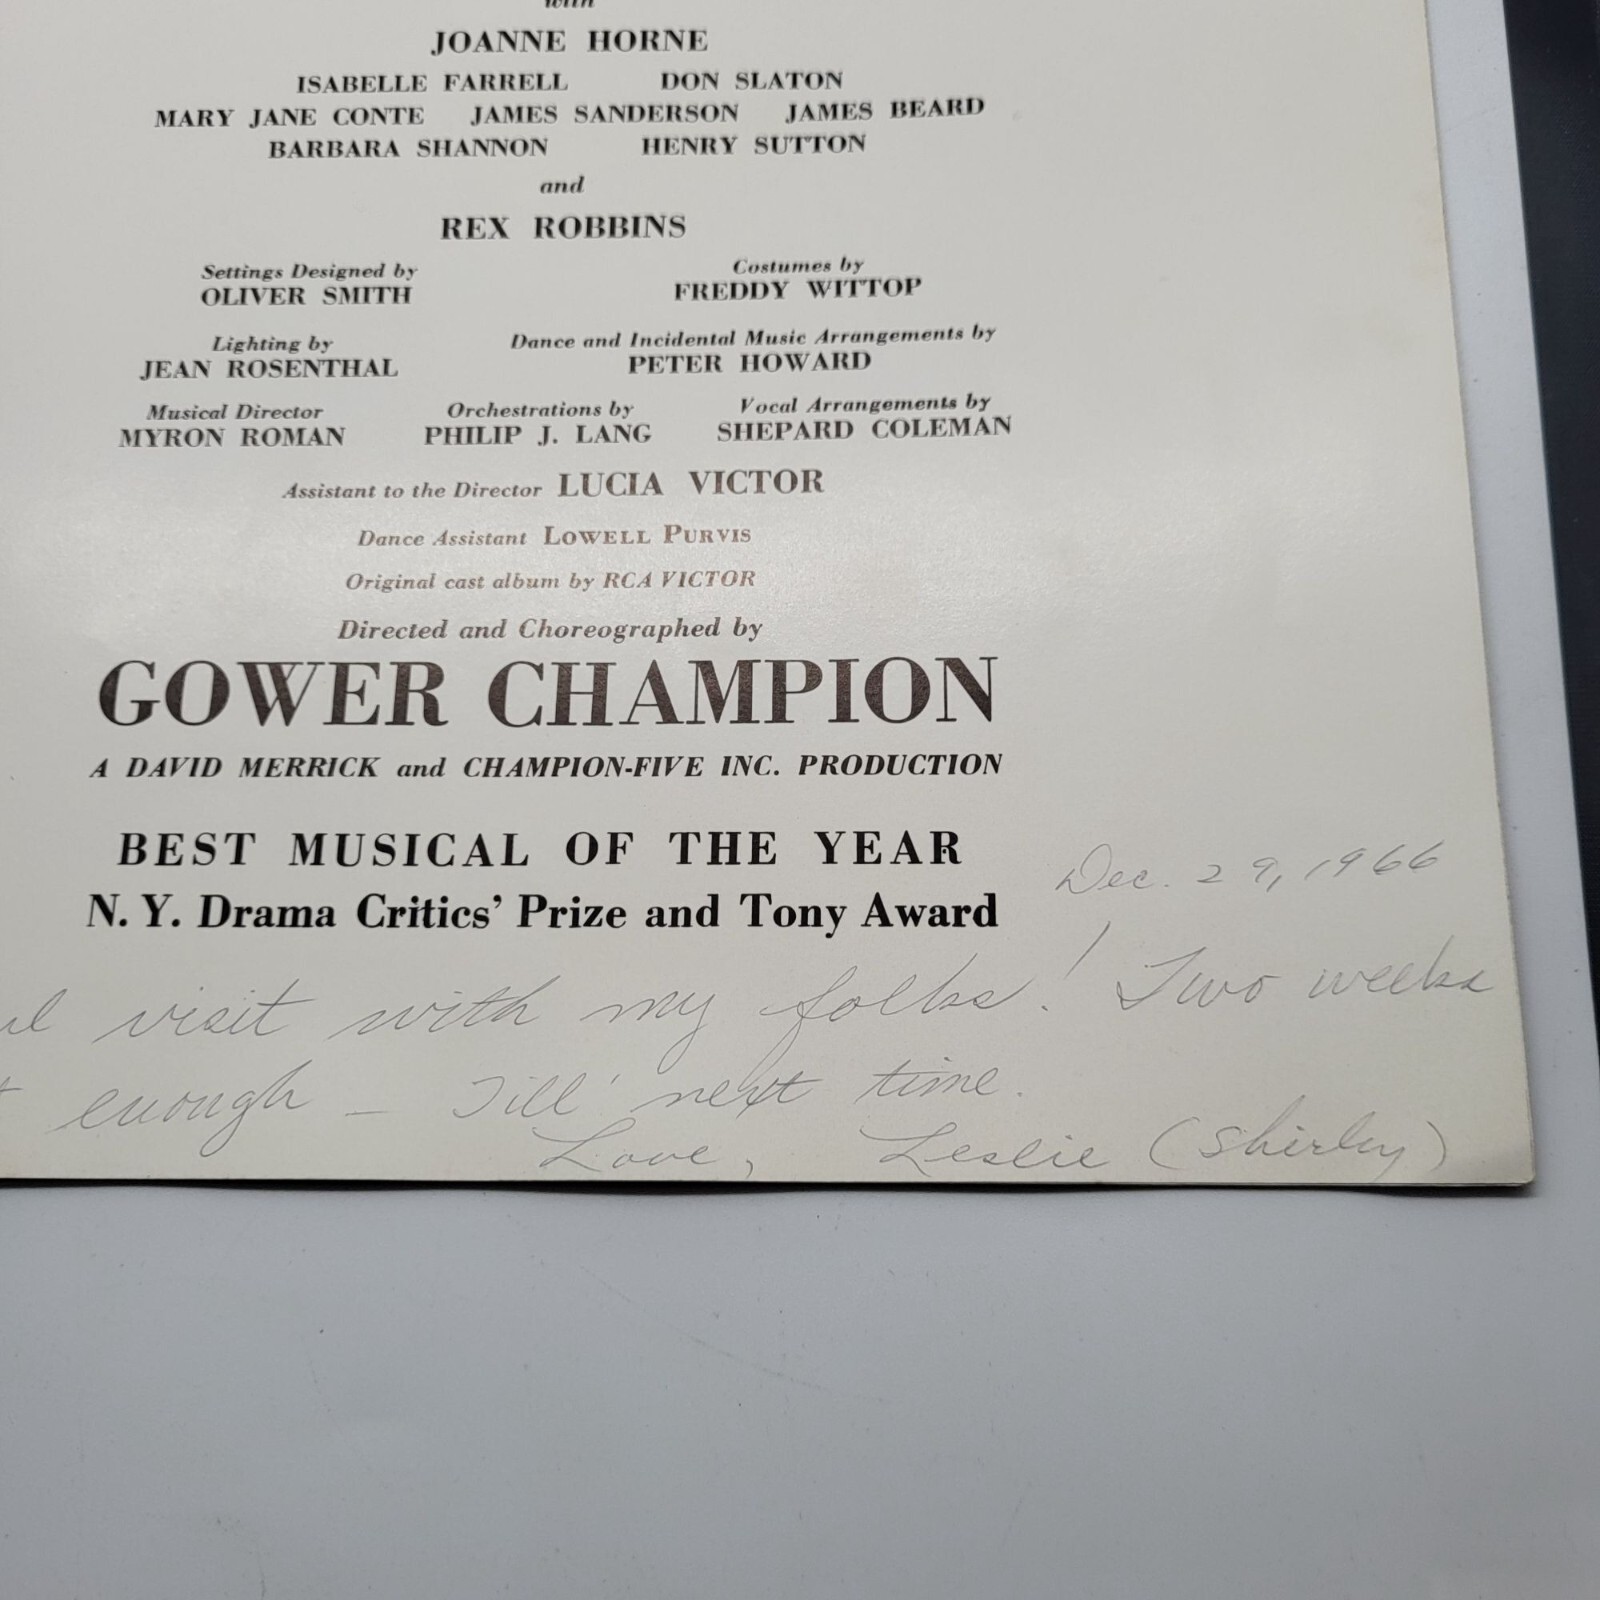 with
JOANNE HORNE
ISABELLE FARRELL DON SLATON
MARY JANE CONTE JAMES SANDERSON JAMES BEARD
BARBARA SHANNON HENRY SUTTON
and
REX ROBBINS
Settings Designed by Costumes by
OLIVER SMITH FREDDY WITTOP
Lighting by Dance and Incidental Music Arrangements by
JEAN ROSENTHAL PETER HOWARD
Musical Director Orchestrations by Vocal Arrangements by
MYRON ROMAN PHILIP J. LANG SHEPARD COLEMAN
Assistant to the Director LUCIA VICTOR
Dance Assistant LOWELL PURVIS
Original cast album by RCA VICTOR
Directed and Choreographed by
GOWER CHAMPION
A DAVID MERRICK and CHAMPION-FIVE INC. PRODUCTION
BEST MUSICAL OF THE YEAR
N. Y. Drama Critics' Prize and Tony Award
Dec. 29, 1966
visit with my folks! Two weeks
enough – Till' next time.
Love, Leslie (Shirley)